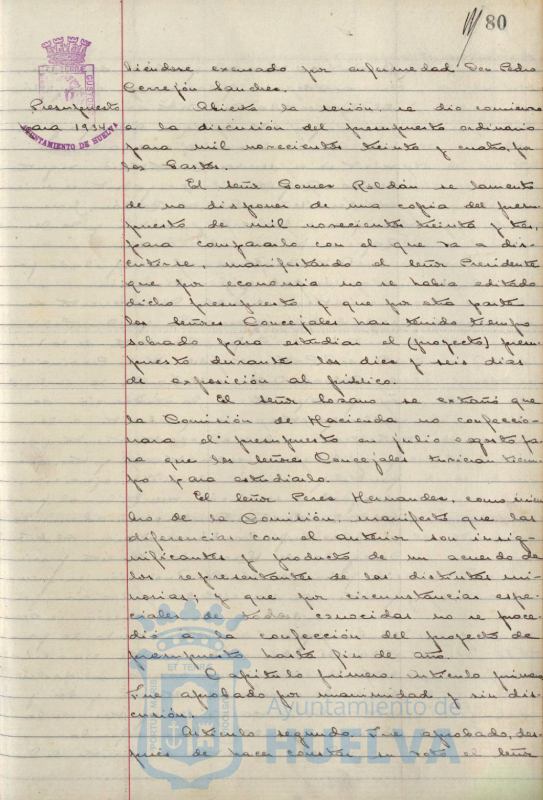 80
biéndose excusado por enfermedad Don Pedro
Cerrejón Sanchez.
Presupuesto
para 1934
AYUNTAMIENTO DE HUELVA
Abierta la sesión, se dio comienzo
a la discusión del presupuesto ordinario
para mil novecientos treinta y cuatro, por
los Gastos.
El señor Gomez Roldán se lamenta
de no disponer de una copia del presu-
puesto de mil novecientos treinta y tres,
para compararlo con el que va a dis-
cutirse, manifestando el Señor Presidente
que por economia no se habia editado
dicho presupuesto y que por otra parte
los Señores Concejales han tenido tiempo
sobrado para estudiar el (proyecto) presu-
puesto durante los diez y seis dias
de exposición al público.
El señor Lozano se extrañó que
la Comisión de Hacienda no confeccio-
nara el presupuesto en julio o agosto pa-
ra que los Señores Concejales tuvieran tiem-
po para estudiarlo.
El Señor Perez Hernandez, como miem-
bro de la Comisión, manifestó que las
diferencias con el anterior son insig-
nificantes y producto de un acuerdo de
los representantes de las distintas mi-
norias; y que por circunstancias espe-
ciales de todos conocidas no se proce-
dió a la confección del proyecto de
presupuesto hasta fin de año.
Capitulo primero. Articulo primero
Fue aprobado por unanimidad y sin dis-
cusión.
Articulo segundo. Fue aprobado, des-
pués de hacer constar su voto el Señor
Ayuntamiento de
HUELVA